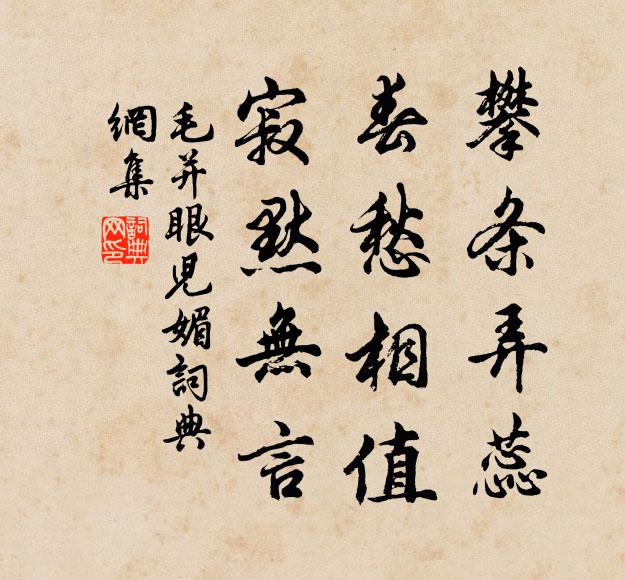 攀条弄蕊
春愁相值
寂默無言
毛并眼児媚詞典
網集
詞典
网印